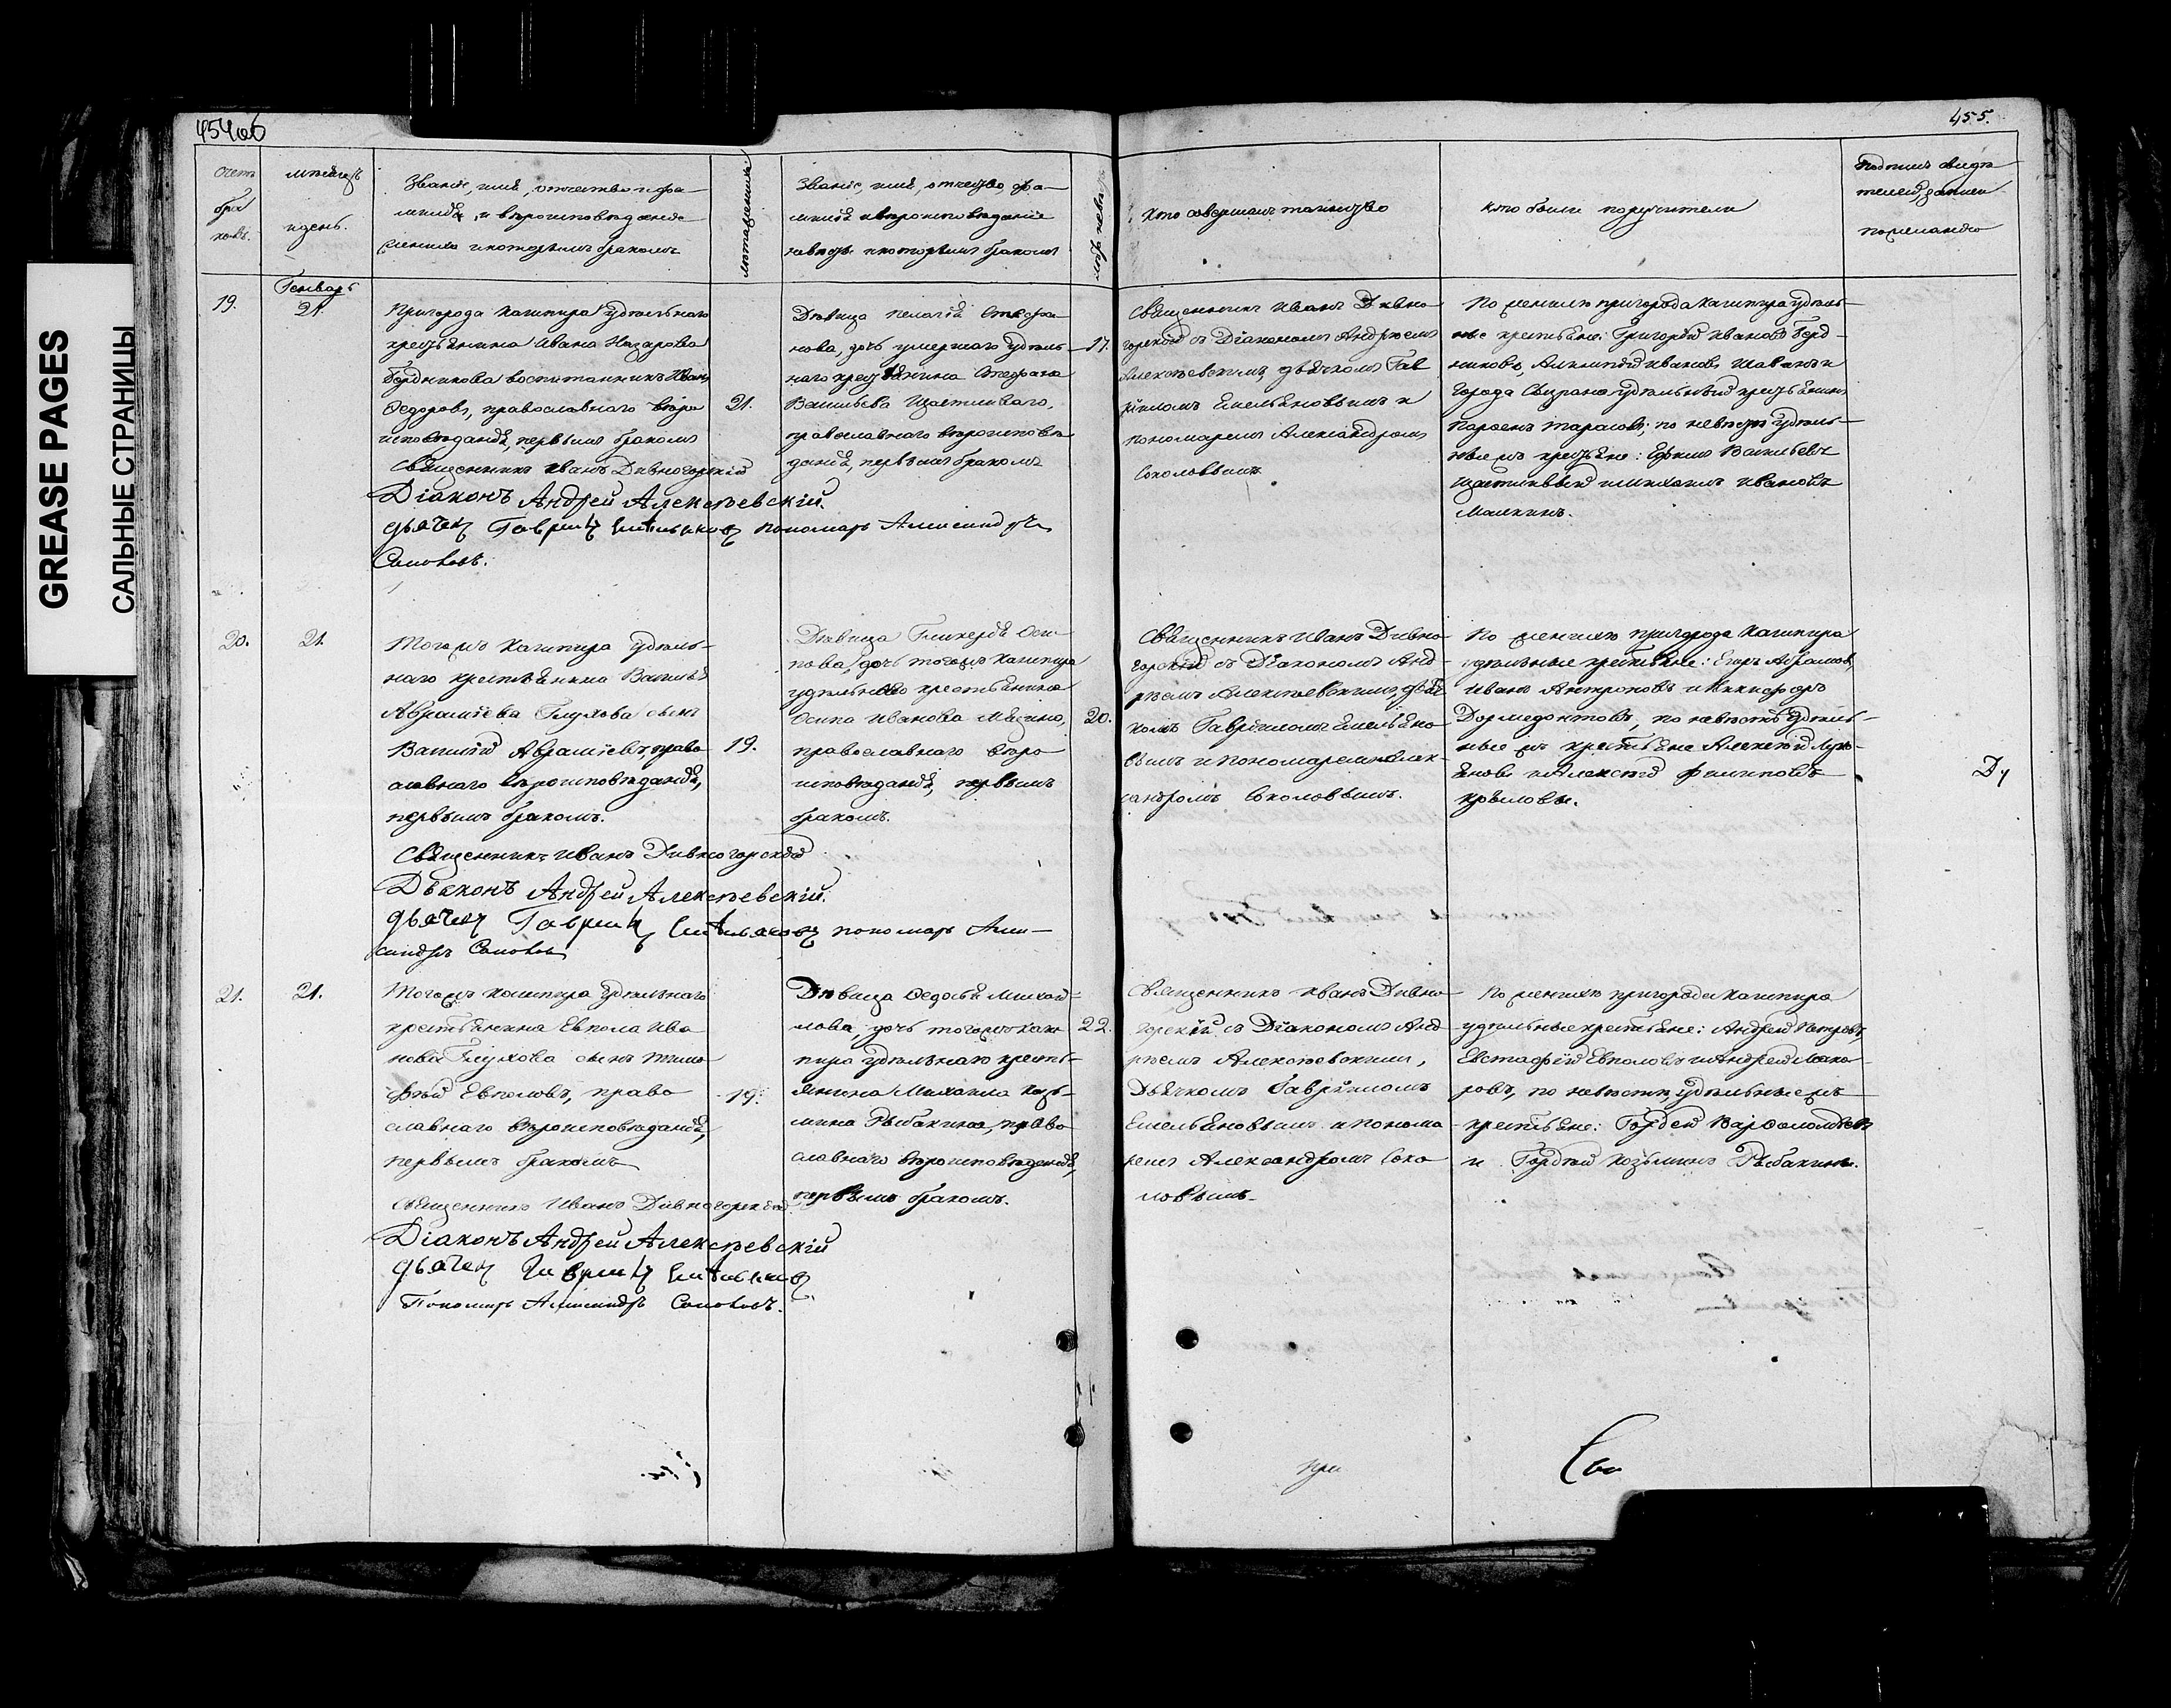 454об
455.
GREASE PAGES
САЛЬНЫЕ СТРАНИЦЫ
Счетъ
бра
ковъ.
мѣсяцъ
и день.
Званіе, имя, отчество и фа-
милія, и вѣроисповѣданіе
жениха и которымъ бракомъ
лѣта жениха
Званіе, имя, отчество, фа-
милія и вѣроисповѣданіе
невѣсты и которымъ бракомъ
лѣта невѣс
Кто совершалъ таинство
Кто были поручители
Подпись свидѣ
телей записи
по желанію
19.
Генварь
21.
Пригорода Кашпира удѣльнаго
крестьянина Ивана Назарова
Бердникова воспитанникъ Иванъ
Ѳедоровъ, православнаго вѣро
исповѣданія, первымъ бракомъ
21.
Дѣвица Пелагія Стефа
нова, дочь умершаго удѣль
наго крестьянина Стефана
Васильева Щастливаго,
православнаго вѣроисповѣ
данія, первымъ бракомъ
17.
Священникъ Иванъ Дивно
горскій съ Діакономъ Андреемъ
Алексѣевскимъ, дьячкомъ Гав
ріиломъ Емельяновымъ и
пономаремъ Александромъ
Соколовымъ
По женихѣ пригорода Кашпира удѣль-
ные крестьяне: Григорій Ивановъ Берд-
никовъ, Иванов и
города Сызрана удѣльный крестьянинъ
Парѳенъ Тарасовъ; по невѣстѣ удѣль-
ные жъ крестьяне: Ефимъ Васильевъ
Щастливый и Михаилъ Ивановъ
Малкинъ.
Священникъ Иванъ Дивногорскій
Діаконъ Андрей Алексѣевскій.
дьячекъ Гаврилъ Емельяновъ пономарь Александръ
Соколовъ.
20.
21.
Тогожъ Кашпира удѣль-
наго крестьянина Василья
Абрамова Глухова сынъ
Василій Абрамовъ, право
славнаго вѣроисповѣданія,
первымъ бракомъ.
19.
Дѣвица Гликерія Оси-
пова, дочь тогожъ Кашпира
удѣльнаго крестьянина
Осипа Иванова
православнаго вѣро
исповѣданія, первымъ
бракомъ.
20.
Священникъ Иванъ Дивно
горскій съ Діакономъ Анд-
реемъ Алексѣевскимъ, дьяч
комъ Гавріиломъ Емельяно
вымъ и пономаремъ Алек-
сандромъ Соколовымъ.
По женихѣ пригорода Кашпира
удѣльные крестьяне: Егоръ Абрамовъ,
Иванъ Антроповъ и Никифоръ
Дормедонтовъ, по невѣстѣ удѣль-
ные жъ крестьяне Алексѣй Лукь-
яновъ и Алексѣй Филиповъ
Крыловы.
Ду
Священникъ Иванъ Дивногорскій
Дьяконъ Андрей Алексѣевскій.
дьячекъ Гаврилъ Емельяновъ пономарь Алек-
сандръ Соколовъ
21.
21.
Тогожъ Кашпира удѣльнаго
крестьянина Евпола Ива
нова Глухова сынъ Тимо
ѳей Евполовъ, право
славнаго вѣроисповѣданія,
первымъ бракомъ
19.
Дѣвица Ѳедосья Михай-
лова, дочь тогожъ Каш
пира удѣльнаго кресть-
янина Михаила Кузь-
мина Рыбакина, право
славнаго вѣроисповѣданія,
первымъ бракомъ.
22.
Священникъ Иванъ Дивно
горскій съ Діакономъ Анд
реемъ Алексѣевскимъ,
Дьячкомъ Гавріиломъ
Емельяновымъ и понома
ремъ Александромъ Соко
ловымъ.
По женихѣ пригорода Кашпира
удѣльные крестьяне: Андрей Петровъ,
Евстафій Евполовъ и Андрей Мака
ровъ, по невѣстѣ удѣльные жъ
крестьяне: Гордей Варѳоломѣевъ
и Гордѣй Козьминъ Рыбакины.
Священникъ Иванъ Дивногорскій
Діаконъ Андрей Алексѣевскій
дьячекъ Гаврилъ Емельяновъ
Пономарь Александръ Соколовъ.
при